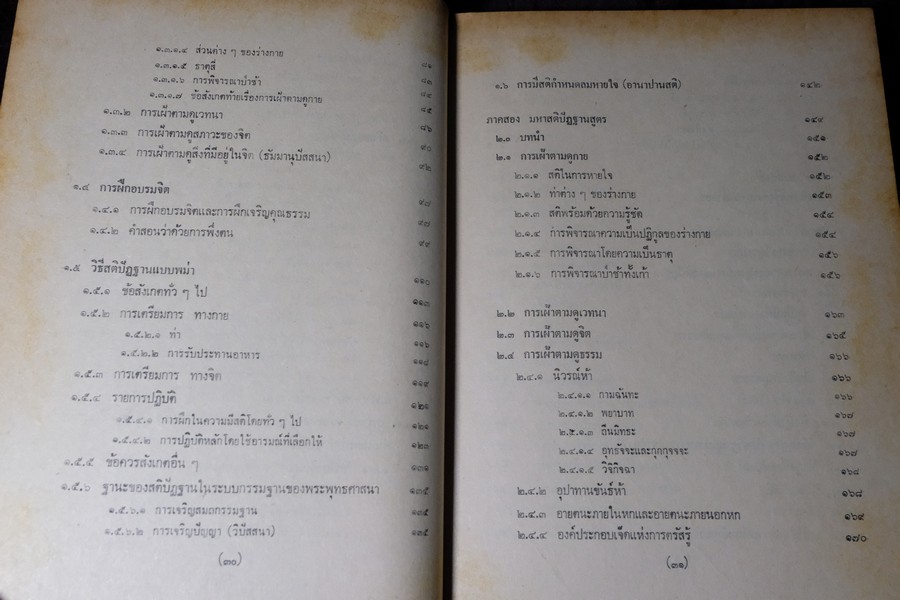 ๑.๓.๑.๔ ส่วนต่าง ๆ ของร่างกาย
๑.๓.๑.๕ ธาตุสี่ ๘๑
๑.๓.๑.๖ การพิจารณาป่าช้า ๘๓
๑.๓.๑.๗ ข้อสังเกตท้ายเรื่องการเฝ้าตามดูกาย ๘๔
๑.๓.๒ การเฝ้าตามดูเวทนา ๘๕
๑.๓.๓ การเฝ้าตามดูสภาวะของจิต ๘๖
๑.๓.๔ การเฝ้าตามดูสิ่งที่มีอยู่ในจิต (ธัมมานุปัสสนา) ๙๐
๙๒
๑.๔ การฝึกอบรมจิต
๑.๔.๑ การฝึกอบรมจิตและการฝึกเจริญคุณธรรม ๙๘
๑.๔.๒ คำสอนว่าด้วยการพึ่งตน ๙๗
๙๙
๑.๕ วิธีสติปัฏฐานแบบพม่า
๑.๕.๑ ข้อสังเกตทั่ว ๆ ไป ๑๑๐
๑.๕.๒ การเตรียมการ ทางกาย ๑๑๓
๑.๕.๒.๑ ท่า ๑๑๖
๑.๕.๒.๒ การรับประทานอาหาร ๑๑๖
๑.๕.๓ การเตรียมการ ทางจิต ๑๑๘
๑.๕.๔ รายการปฏิบัติ ๑๑๙
๑.๕.๔.๑ การฝึกในความมีสติโดยทั่ว ๆ ไป ๑๒๑
๑.๕.๔.๒ การปฏิบัติหลักโดยใช้อารมณ์ที่เลือกให้ ๑๒๑
๑.๕.๕ ข้อควรสังเกตอื่น ๆ ๑๒๓
๑๓๑
๑.๕.๖ ฐานะของสติปัฏฐานในระบบกรรมฐานของพระพุทธศาสนา ๑๓๕
๑.๕.๖.๑ การเจริญสมถกรรมฐาน ๑๓๕
๑.๕.๖.๒ การเจริญปัญญา (วิปัสสนา) ๑๓๕
(๓๐)
๑.๖ การมีสติกำหนดลมหายใจ (อานาปานสติ) ๑๔๒
ภาคสอง มหาสติปัฏฐานสูตร ๑๔๙
๒.๐ บทนำ ๑๕๑
๒.๑ การเฝ้าตามดูกาย ๑๕๒
๒.๑.๑ สติในการหายใจ ๑๕๒
๒.๑.๒ ท่าต่าง ๆ ของร่างกาย ๑๕๓
๒.๑.๓ สติพร้อมด้วยความรู้ชัด ๑๕๔
๒.๑.๔ การพิจารณาความเป็นปฏิกูลของร่างกาย ๑๕๔
๒.๑.๕ การพิจารณาโดยความเป็นธาตุ ๑๕๖
๒.๑.๖ การพิจารณาป่าช้าทั้งเก้า ๑๕๖
๒.๒ การเฝ้าตามดูเวทนา ๑๖๓
๒.๓ การเฝ้าตามดูจิต ๑๖๕
๒.๔ การเฝ้าตามดูธรรม ๑๖๖
๒.๔.๑ นิวรณ์ห้า ๑๖๖
๒.๔.๑.๑ กามฉันทะ ๑๖๖
๒.๔.๑.๒ พยาบาท ๑๖๗
๒.๕.๑.๓ ถีนมิทธะ ๑๖๗
๒.๔.๑.๔ อุทธัจจะและกุกกุจจะ ๑๖๗
๒.๔.๑.๕ วิจิกิจฉา ๑๖๘
๒.๔.๒ อุปาทานขันธ์ห้า ๑๖๘
๒.๔.๓ อายตนะภายในหกและอายตนะภายนอกหก ๑๖๙
๒.๔.๔ องค์ประกอบเจ็ดแห่งการตรัสรู้ ๑๗๐
(๓๑)